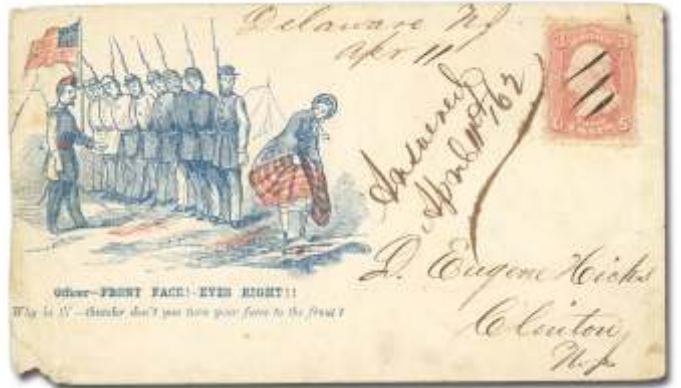 Delaware NJ
Apr 11
Answered
April 11th / 62
D. Eugene Hicks
Clinton
N. J.
Officer—FRONT FACE!—EYES RIGHT!!
Why in th'—thunder don't you turn your faces to the front?
3 3
U S